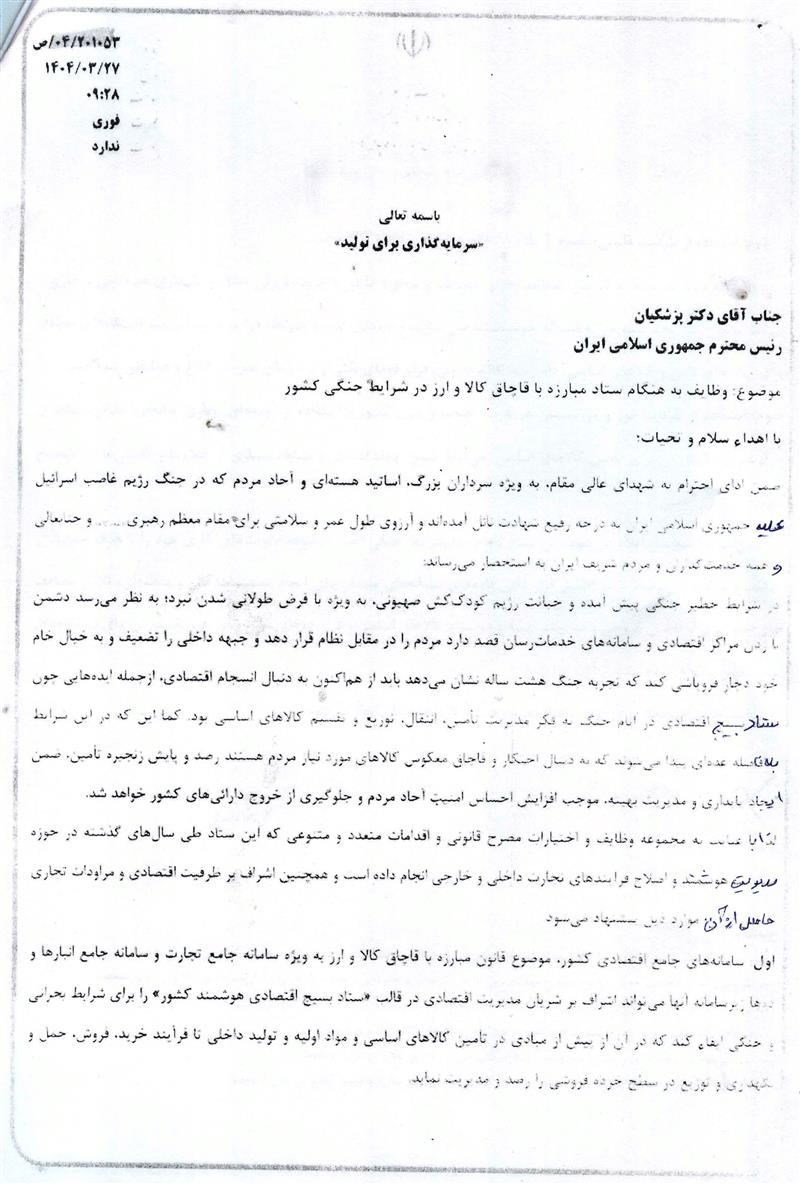 ۰۴/۲۰۱۰۵۳/ص
۱۴۰۴/۰۳/۲۷
۰۹:۲۸
فوری
ندارد
باسمه تعالی
«سرمایه‌گذاری برای تولید»
جناب آقای دکتر پزشکیان
رئیس محترم جمهوری اسلامی ایران
موضوع: وظایف به هنگام ستاد مبارزه با قاچاق کالا و ارز در شرایط جنگی کشور
با اهداء سلام و تحیات؛
ضمن ادای احترام به شهدای عالی مقام، به ویژه سرداران بزرگ، اساتید هسته‌ای و آحاد مردم که در جنگ رژیم غاصب اسرائیل
علیه جمهوری اسلامی ایران به درجه رفیع شهادت نائل آمده‌اند و آرزوی طول عمر و سلامتی برای مقام معظم رهبری ...... و جنابعالی
و همه خدمت‌گذاران و مردم شریف ایران به استحضار می‌رساند:
در شرایط خطیر جنگی پیش آمده و خباثت رژیم کودک‌کش صهیونی، به ویژه با فرض طولانی شدن نبرد؛ به نظر می‌رسد دشمن
با زدن مراکز اقتصادی و سامانه‌های خدمات‌رسان قصد دارد مردم را در مقابل نظام قرار دهد و جبهه داخلی را تضعیف و به خیال خام
خود دچار فروپاشی کند که تجربه جنگ هشت ساله نشان می‌دهد باید از هم‌اکنون به دنبال انسجام اقتصادی، ازجمله ایده‌هایی چون
ستاد بسیج اقتصادی در ایام جنگ به فکر مدیریت تأمین، انتقال، توزیع و تقسیم کالاهای اساسی بود. کما این که در این شرایط
بلافاصله عده‌ای پیدا می‌شوند که به دنبال احتکار و قاچاق معکوس کالاهای مورد نیاز مردم هستند رصد و پایش زنجیره تأمین، ضمن
ایجاد پایداری و مدیریت بهینه، موجب افزایش احساس امنیت آحاد مردم و جلوگیری از خروج دارائی‌های کشور خواهد شد.
لذا با عنایت به مجموعه وظایف و اختیارات مصرح قانونی و اقدامات متعدد و متنوعی که این ستاد طی سال‌های گذشته در حوزه
مدیریت هوشمند و اصلاح فرایندهای تجارت داخلی و خارجی انجام داده است و همچنین اشراف بر ظرفیت اقتصادی و مراودات تجاری
حاصل از آن، موارد ذیل پیشنهاد می‌شود
اول: سامانه‌های جامع اقتصادی کشور، موضوع قانون مبارزه با قاچاق کالا و ارز به ویژه سامانه جامع تجارت و سامانه جامع انبارها و
ده‌ها زیرسامانه آنها می‌تواند اشراف بر شریان مدیریت اقتصادی در قالب «ستاد بسیج اقتصادی هوشمند کشور» را برای شرایط بحرانی
و جنگی ایفاء کند که در آن از پیش از مبادی در تأمین کالاهای اساسی و مواد اولیه و تولید داخلی تا فرآیند خرید، فروش، حمل و
نگهداری و توزیع در سطح خرده فروشی را رصد و مدیریت نماید.